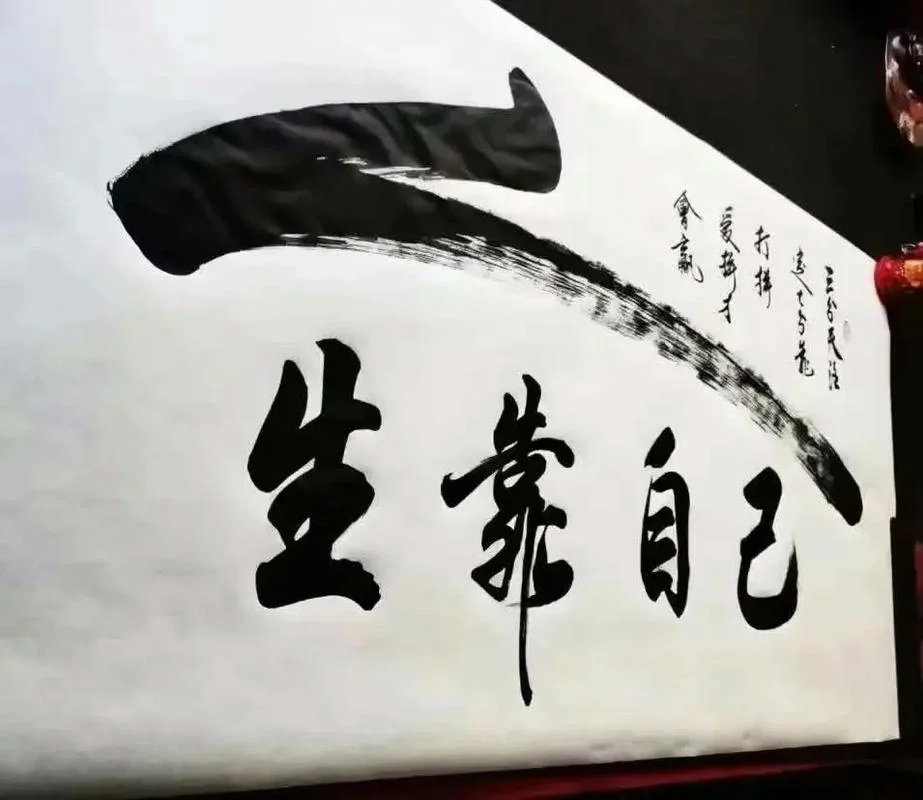 人
生靠自己
三分天注
定七分靠
打拼
爱拼才
會赢